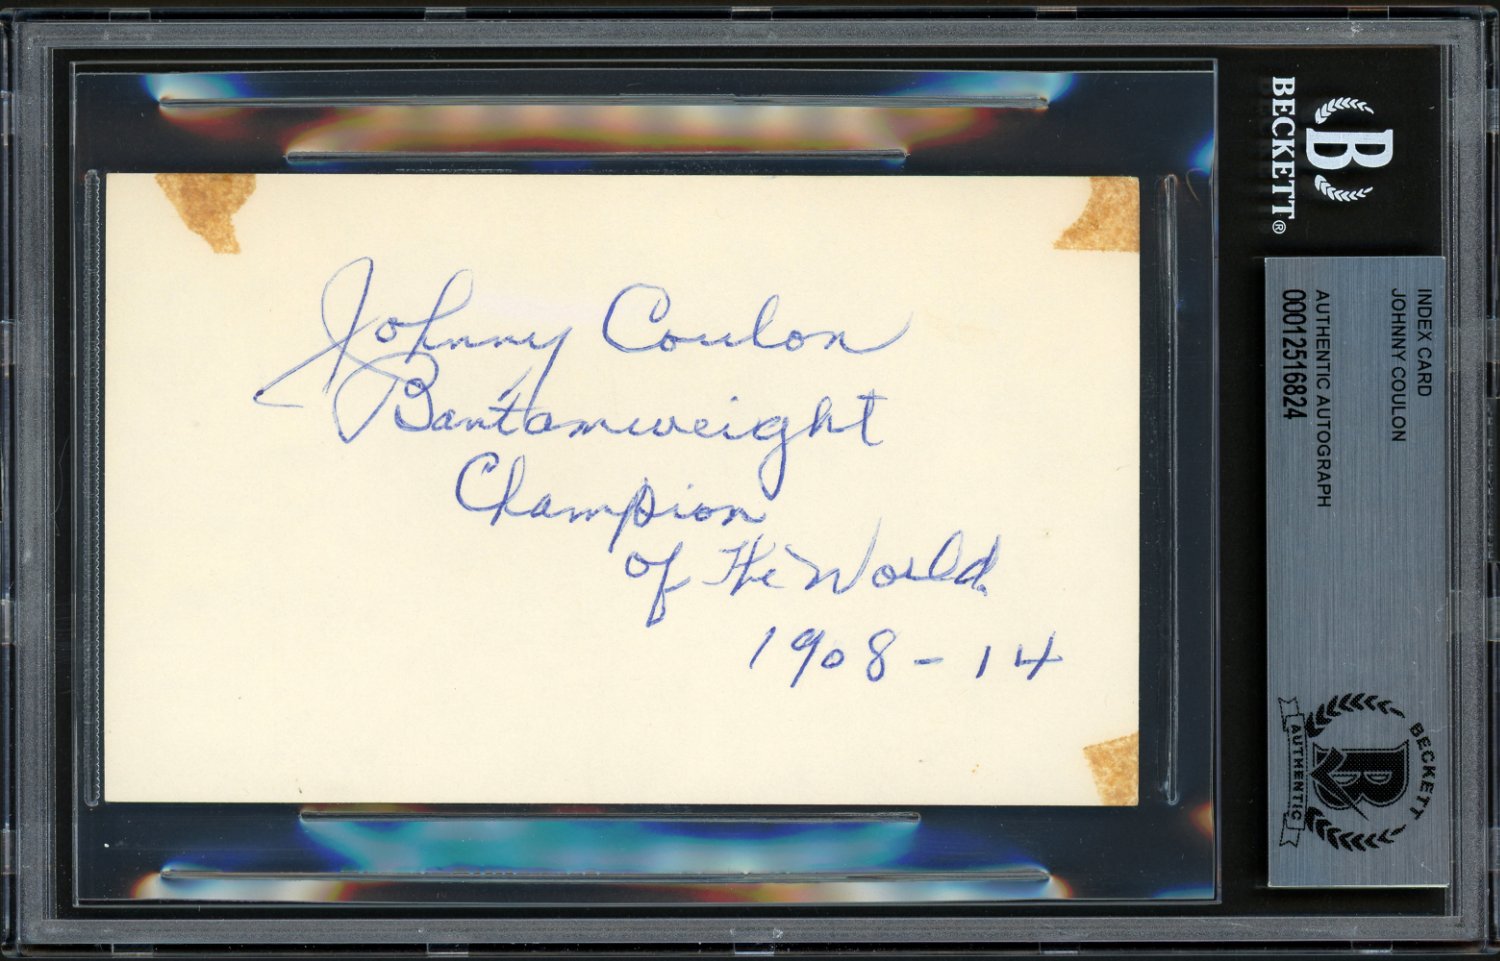 Johnny Coulon
Bantamweight
Champion
of the World.
1908-14
BECKETT®
B
INDEX CARD
JOHNNY COULON
AUTHENTIC AUTOGRAPH
00012516824
BECKETT
B
AUTHENTIC